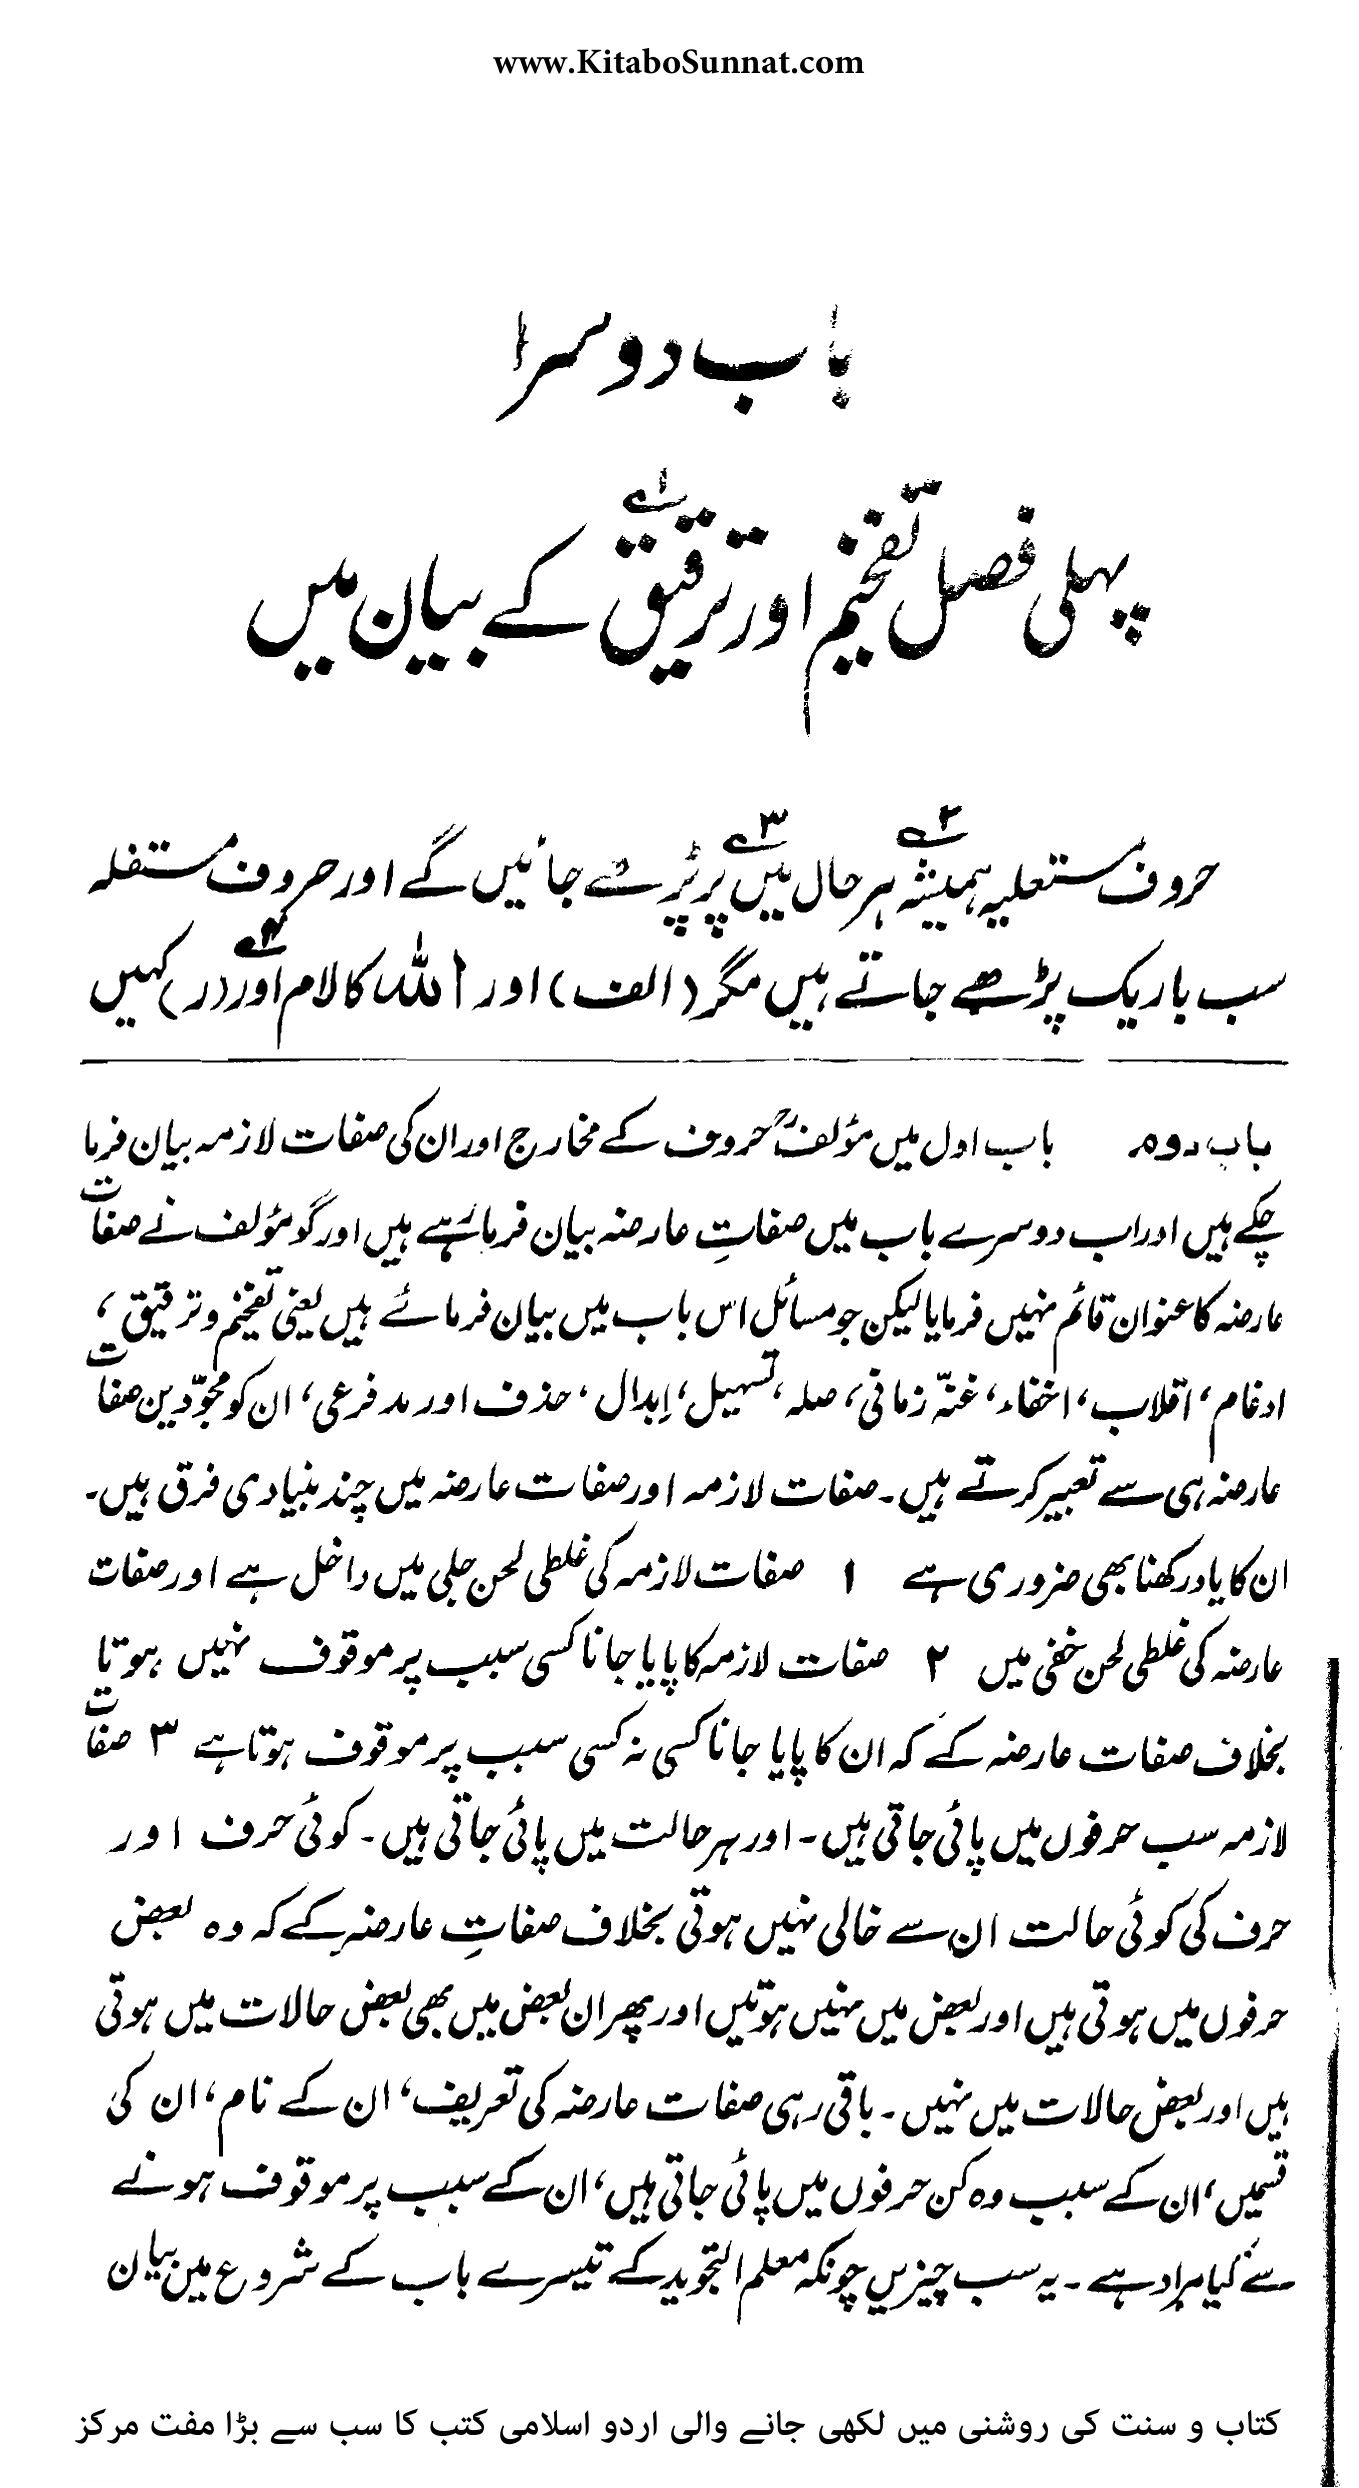 www.KitaboSunnat.com
باب دوسرا
پہلی فصل تفخیم اور ترقیق۱؎ کے بیان میں
حروف مستعلیہ ہمیشہ۲؎ ہر حال میں۳؎ پُر پڑھے جائیں گے اور حروف مستفلہ
سب باریک پڑھے جاتے ہیں مگر (الف) اور اللہ کا لام۴؎ اور (ر) کہیں
باب دوم باب اول میں مؤلفؒ حروف کے مخارج اور ان کی صفات لازمہ بیان فرما
چکے ہیں اور اب دوسرے باب میں صفاتِ عارضہ بیان فرما رہے ہیں اور گو مؤلف نے صفات
عارضہ کا عنوان قائم نہیں فرمایا لیکن جو مسائل اس باب میں بیان فرمائے ہیں یعنی تفخیم و ترقیق،
ادغام، اقلاب، اخفاء، غنّہ زمانی، صلہ، تسہیل، اِبدال، حذف اور مد فرعی، ان کو مجوّدین صفات
عارضہ ہی سے تعبیر کرتے ہیں۔ صفات لازمہ اور صفات عارضہ میں چند بنیادی فرق ہیں۔
ان کا یاد رکھنا بھی ضروری ہے ۱ صفات لازمہ کی غلطی لحن جلی میں داخل ہے اور صفات
عارضہ کی غلطی لحن خفی میں ۲ صفات لازمہ کا پایا جانا کسی سبب پر موقوف نہیں ہوتا
بخلاف صفات عارضہ کے کہ ان کا پایا جانا کسی نہ کسی سبب پر موقوف ہوتا ہے ۳ صفات
لازمہ سب حرفوں میں پائی جاتی ہیں۔ اور ہر حالت میں پائی جاتی ہیں۔ کوئی حرف اور
حرف کی کوئی حالت ان سے خالی نہیں ہوتی بخلاف صفاتِ عارضہ کے کہ وہ بعض
حرفوں میں ہوتی ہیں اور بعض میں نہیں ہوتیں اور پھر ان بعض میں بھی بعض حالات میں ہوتی
ہیں اور بعض حالات میں نہیں۔ باقی رہی صفات عارضہ کی تعریف، ان کے نام، ان کی
قسمیں، ان کے سبب وہ کن حرفوں میں پائی جاتی ہیں، ان کے سبب پر موقوف ہونے
سے کیا مراد ہے۔ یہ سب چیزیں چونکہ معلم التجوید کے تیسرے باب کے شروع میں بیان
کتاب و سنت کی روشنی میں لکھی جانے والی اردو اسلامی کتب کا سب سے بڑا مفت مرکز